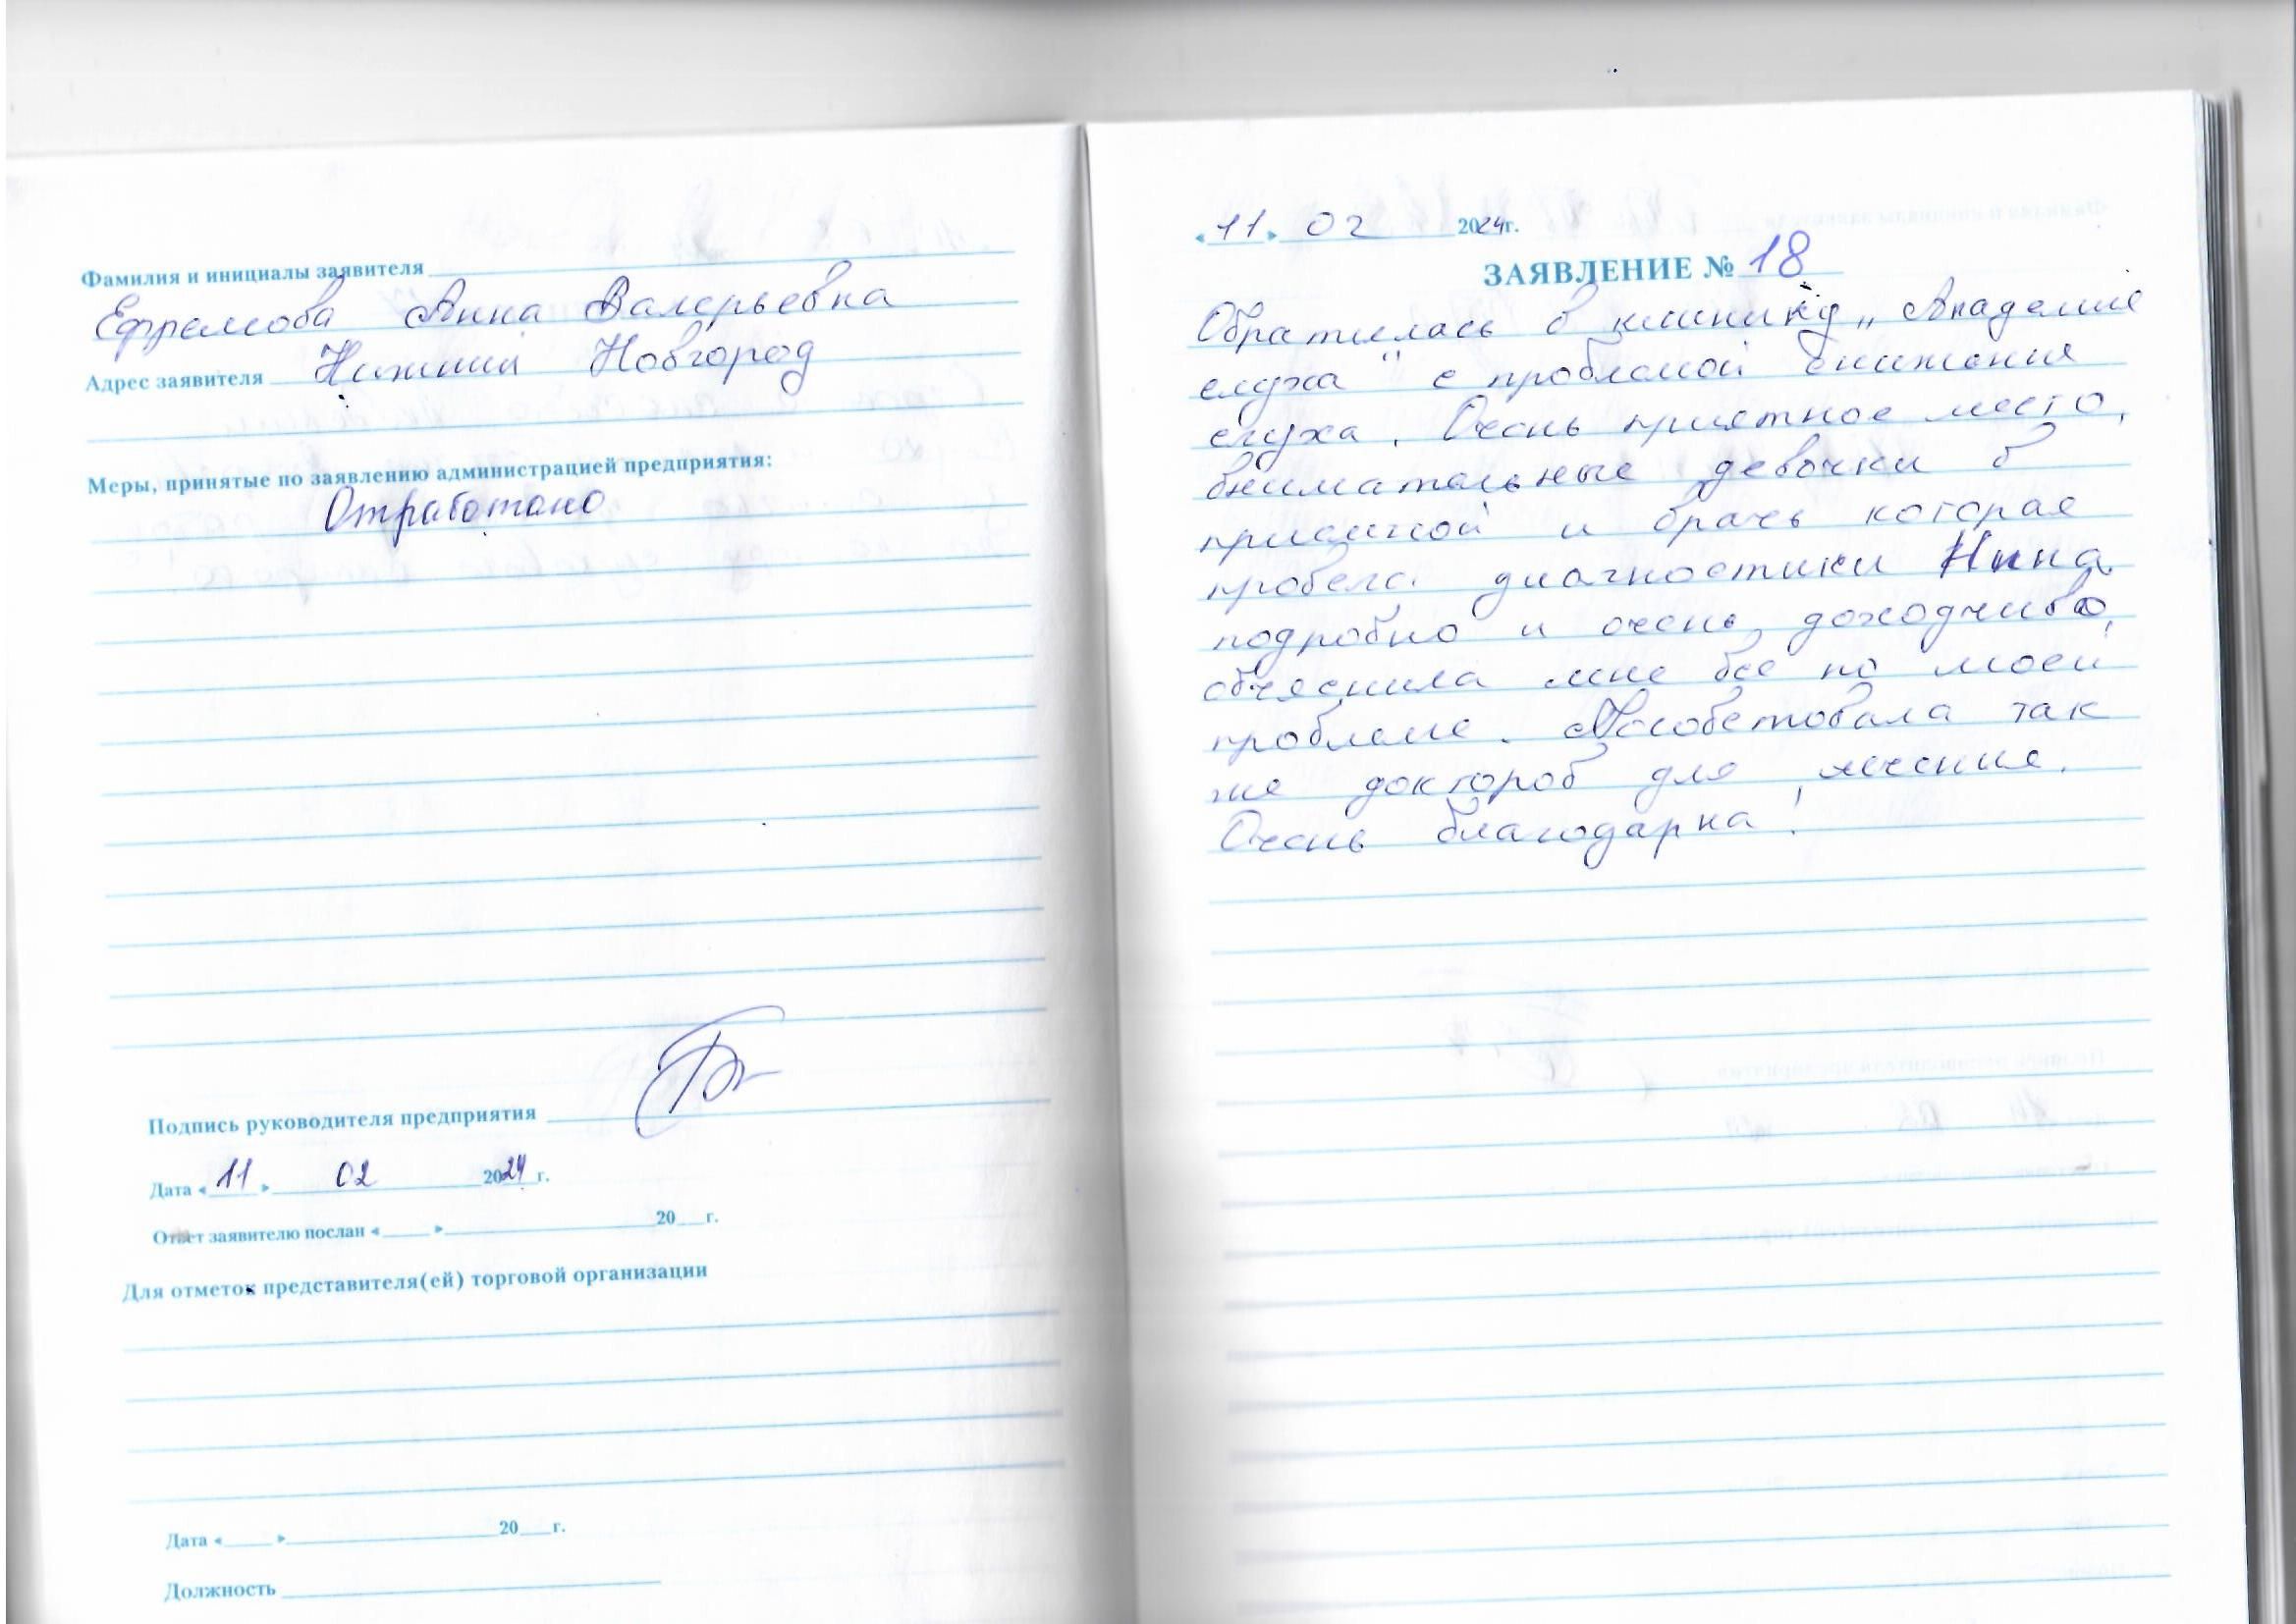 Фамилия и инициалы заявителя
Ефремова Анна Валерьевна
Адрес заявителя Нижний Новгород
Меры, принятые по заявлению администрацией предприятия:
Отработано
Подпись руководителя предприятия
Дата «11» 02 2024г.
Ответ заявителю послан «___» 20__г.
Для отметок представителя(ей) торговой организации
Дата «___» 20__г.
Должность
«11» 02 2024г.
ЗАЯВЛЕНИЕ № 18
Обратилась в клинику „Академия
слуха" с проблемой снижения
слуха. Очень приятное место,
внимательные девочки в
приемной и врачь которая
провела диагностики Нина,
подробно и очень доходчиво,
объяснила мне все по моей
проблеме. Посоветовала так
же докторов для лечения.
Очень благодарна!